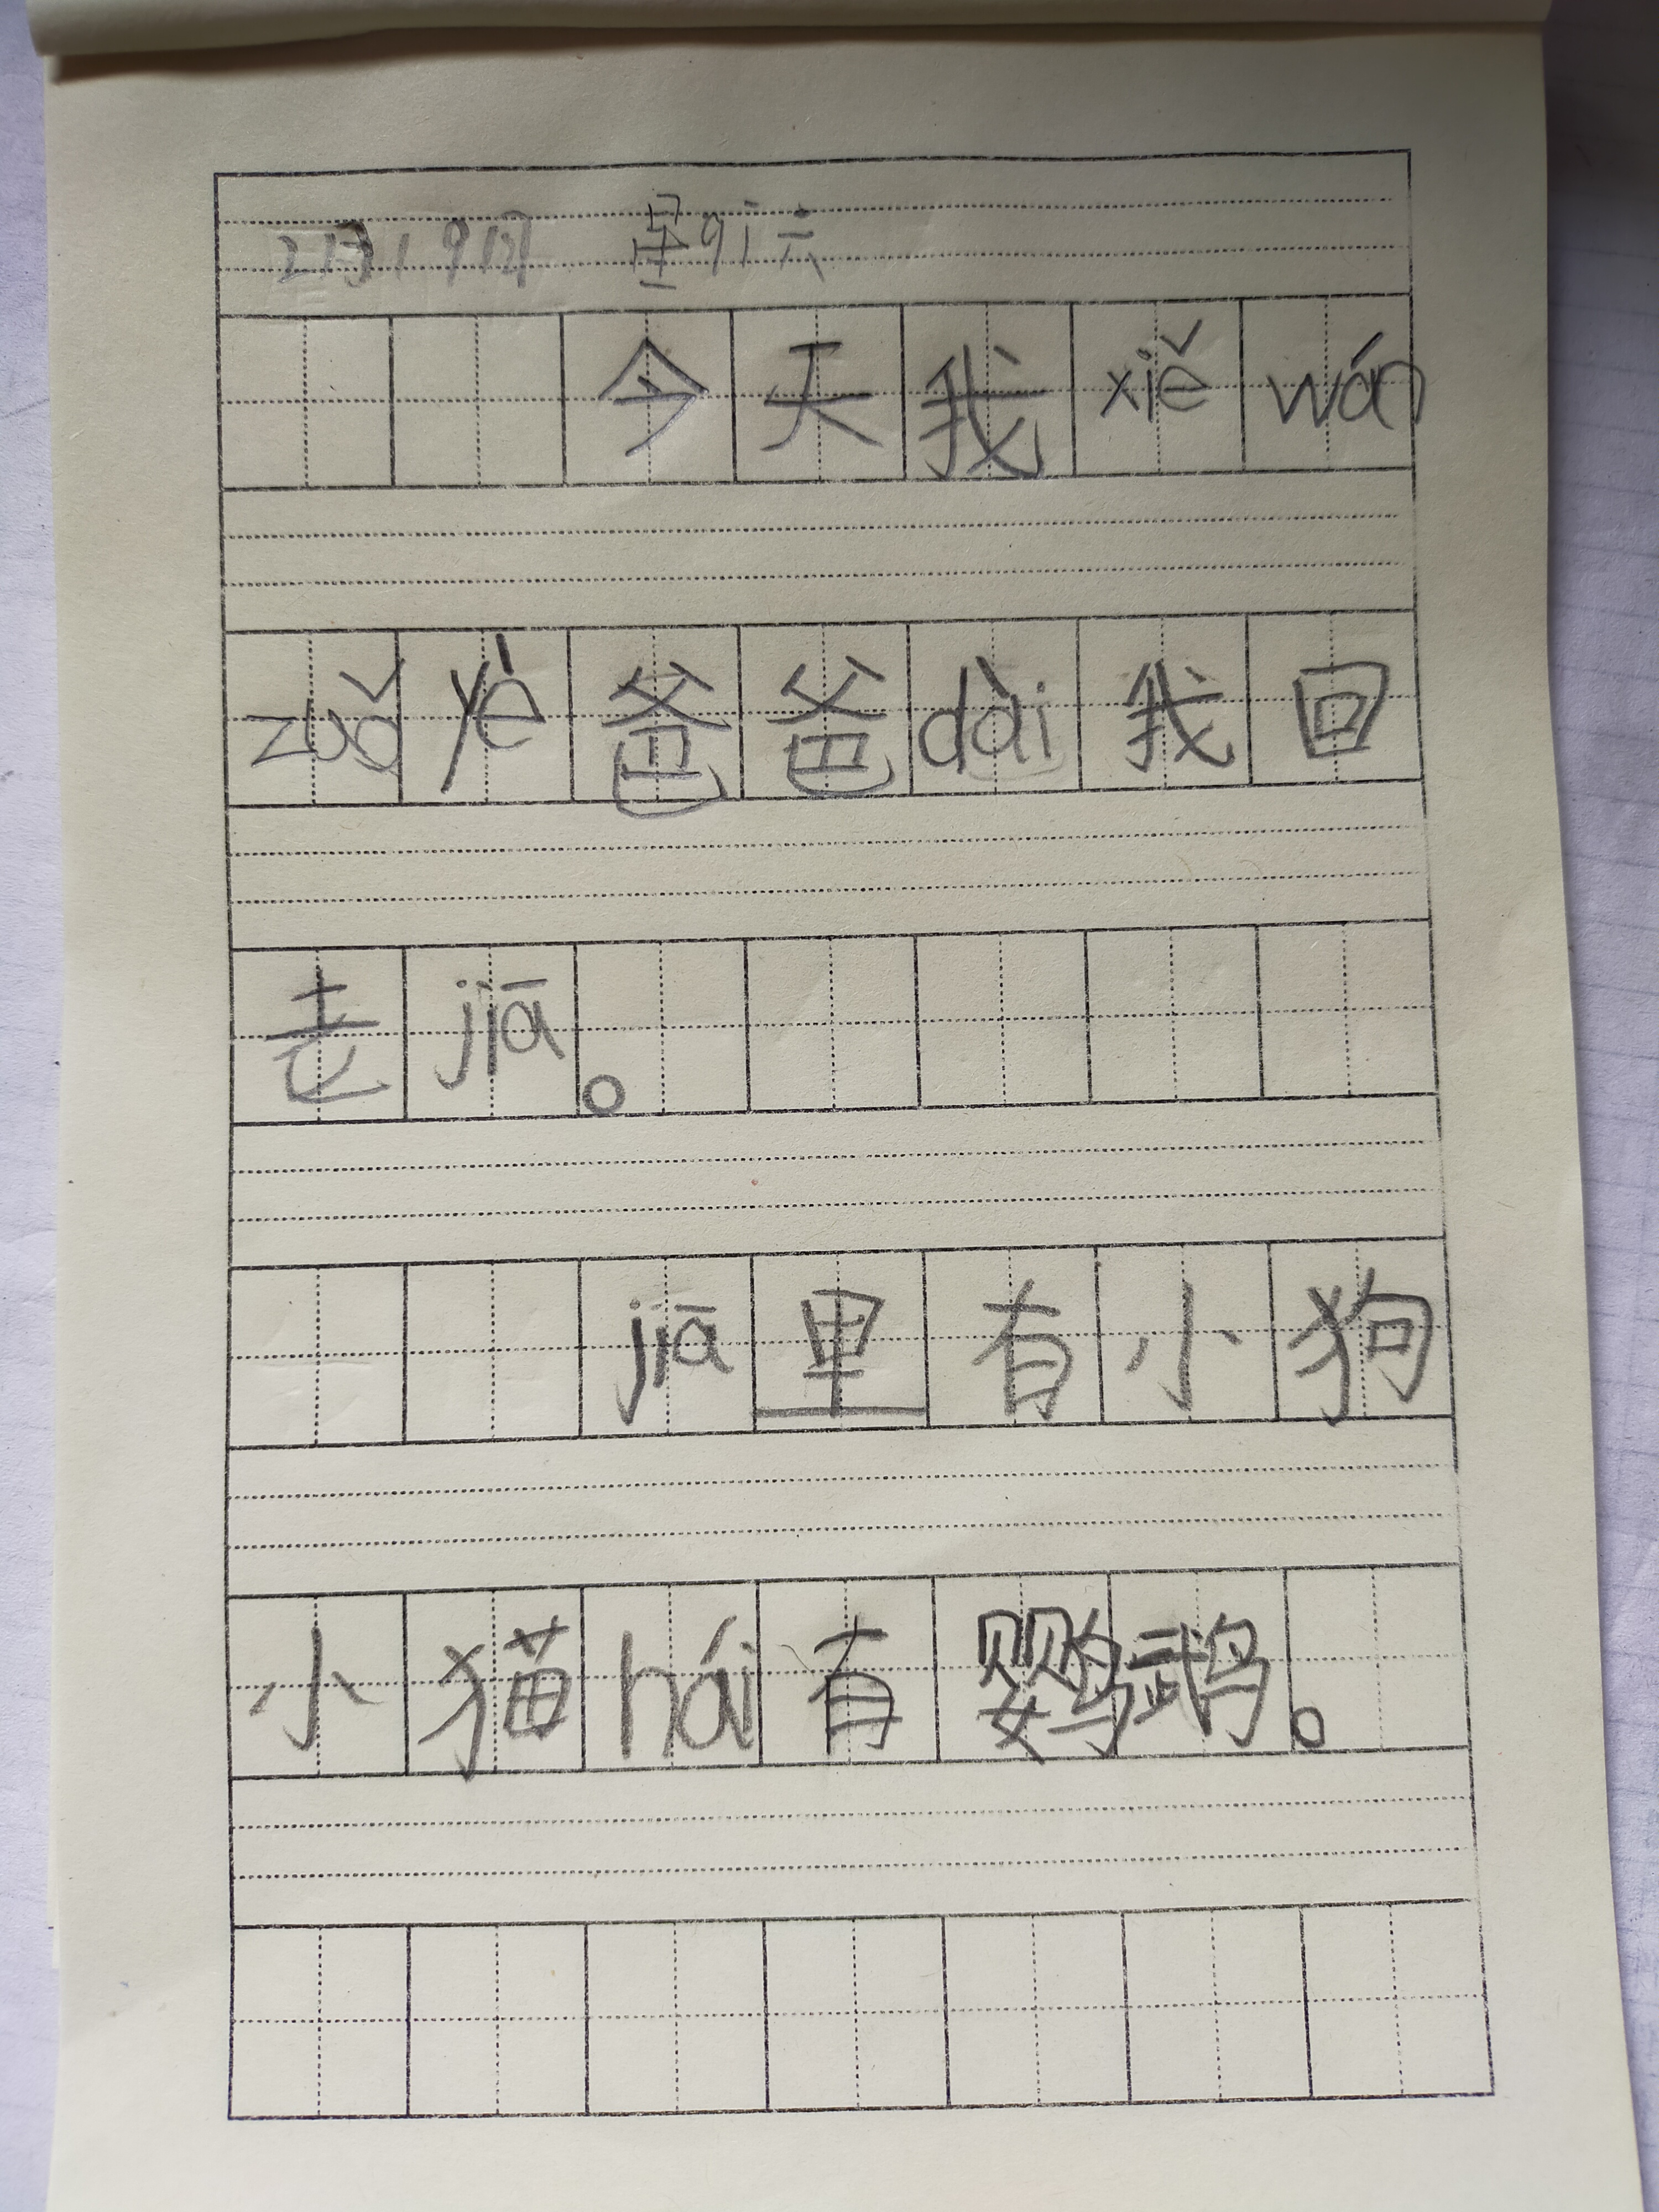 星qī六
今天我xiě wán
zuǒ yè爸爸dài我回
老jiā。
jiā里有小狗
小猫hái有鹦鹉。